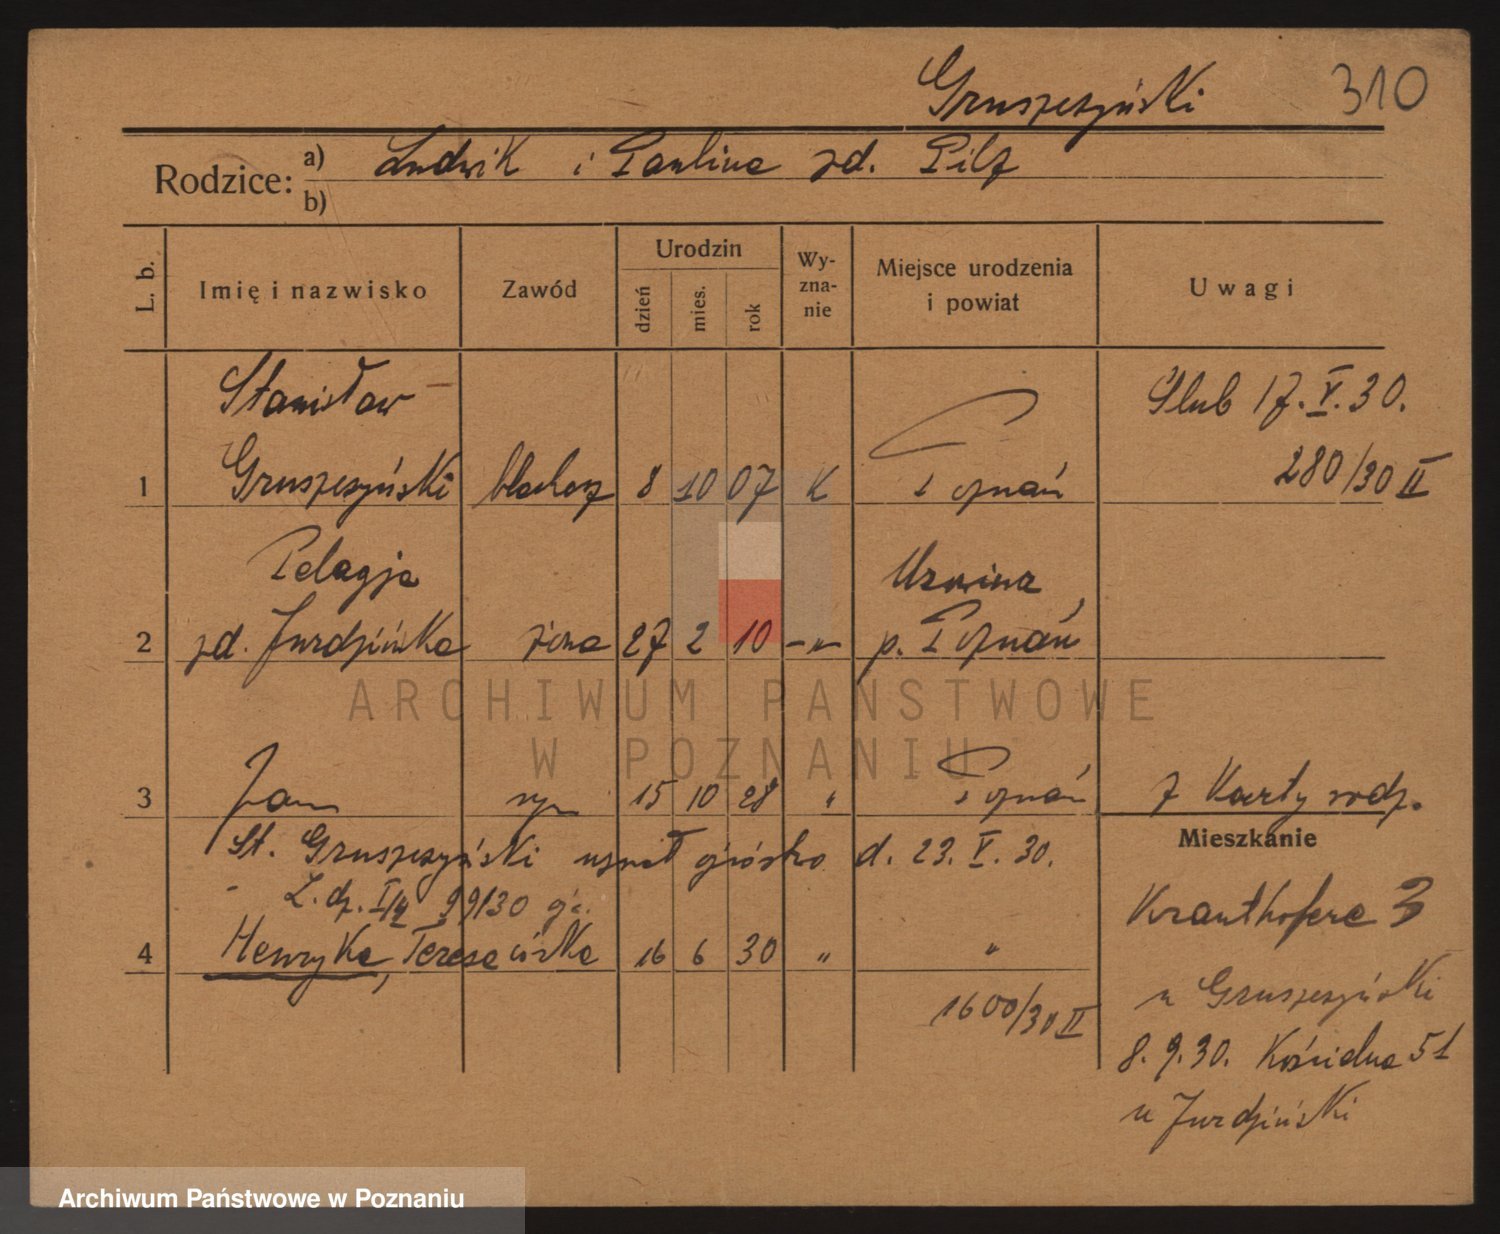 Gruszczyński 310
Rodzice: a) Ludwik i Paulina zd. Pilz
b)
L. b. Imię i nazwisko Zawód Urodzin dzień mies. rok Wyznanie Miejsce urodzenia i powiat Uwagi
Stanisław Ślub 17. V. 30.
1 Gruszczyński blacharz 8 10 07 K Poznań 280/30 II
Pelagja
2 zd. Jurdzińska żona 27 2 10 -"- p. Poznań
ARCHIWUM PAŃSTWOWE
W POZNANIU
3 Jan syn 15 10 28 " Poznań z Karty rodz.
St. Gruszczyński uznał ojcostwo d. 23. V. 30.
Mieszkanie
Kranthofera 3
4 Henryka, Teresa córka 16 6 30 " "
1600/30 II
u Gruszczyński
8. 9. 30. Kościelna 51
u Jurdziński
Archiwum Państwowe w Poznaniu